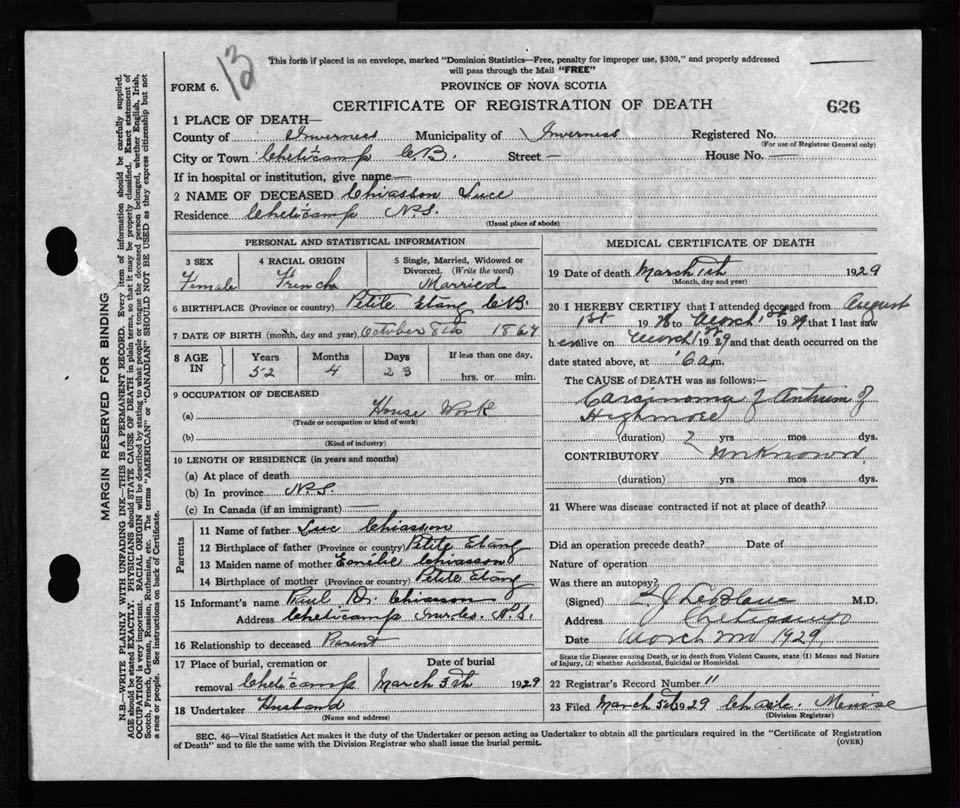 13
This form if placed in an envelope, marked "Dominion Statistics—Free, penalty for improper use, $300," and properly addressed
will pass through the Mail "FREE"
FORM 6.
PROVINCE OF NOVA SCOTIA
CERTIFICATE OF REGISTRATION OF DEATH
626
1 PLACE OF DEATH—
County of Inverness Municipality of Inverness Registered No.
(For use of Registrar General only)
City or Town Cheticamp C.B. Street — House No. —
If in hospital or institution, give name —
2 NAME OF DECEASED Chiasson Luce
Residence Cheticamp N.S.
(Usual place of abode)
PERSONAL AND STATISTICAL INFORMATION
3 SEX 4 RACIAL ORIGIN 5 Single, Married, Widowed or
Divorced. (Write the word)
Female French Married
6 BIRTHPLACE (Province or country) Petite Etang C.B.
7 DATE OF BIRTH (month, day and year) October 8th
8 AGE IN Years Months Days If less than one day,
52 4 23 hrs. or min.
9 OCCUPATION OF DECEASED
(a) House Work
(Trade or occupation or kind of work)
(b)
(Kind of industry)
10 LENGTH OF RESIDENCE (in years and months)
(a) At place of death
(b) In province N.S.
(c) In Canada (if an immigrant) —
Parents
11 Name of father Luc Chiasson
12 Birthplace of father (Province or country) Petite Etang
13 Maiden name of mother Emélie Chiasson
14 Birthplace of mother (Province or country) Petite Etang
15 Informant's name Paul D. Chiasson
Address Cheticamp N.S.
16 Relationship to deceased Parent
17 Place of burial, cremation or Date of burial
removal Cheticamp March 5th 1929
18 Undertaker Husband
(Name and address)
MEDICAL CERTIFICATE OF DEATH
19 Date of death March 1st 1929
(Month, day and year)
20 I HEREBY CERTIFY that I attended deceased from August
1st 19 to March 1st 1929 that I last saw
h er alive on March 1st 1929 and that death occurred on the
date stated above, at 6 a.m.
The CAUSE OF DEATH was as follows:—
Carcinoma of Antrum of
Highmore
(duration) 2 yrs mos dys.
CONTRIBUTORY Unknown
(duration) yrs mos dys.
21 Where was disease contracted if not at place of death?
Did an operation precede death? Date of
Nature of operation
Was there an autopsy?
(Signed) L. J. LeBlanc M.D.
Address Cheticamp
Date March 2nd 1929
State the Disease causing Death, or in death from Violent Causes, state (1) Means and Nature
of Injury, (2) whether Accidental, Suicidal or Homicidal.
22 Registrar's Record Number 11
23 Filed March 5th 1929 Chas
(Division Registrar)
SEC. 46—Vital Statistics Act makes it the duty of the Undertaker or person acting as Undertaker to obtain all the particulars required in the "Certificate of Registration
of Death" and to file the same with the Division Registrar who shall issue the burial permit.
(OVER)
MARGIN RESERVED FOR BINDING
N.B.—WRITE PLAINLY WITH UNFADING INK—THIS IS A PERMANENT RECORD. Every item of information should be carefully supplied.
AGE should be stated EXACTLY. PHYSICIANS should STATE CAUSE OF DEATH in plain terms, so that it may be properly classified. Exact statement of
OCCUPATION is very important. RACIAL ORIGIN will be described by stating to what people or tongue the deceased person belonged, whether English, Irish,
Scotch, French, German, Russian, Ruthenian, etc. The terms "AMERICAN" or "CANADIAN" SHOULD NOT BE USED as they express citizenship but not
a race or people. See instructions on back of Certificate.